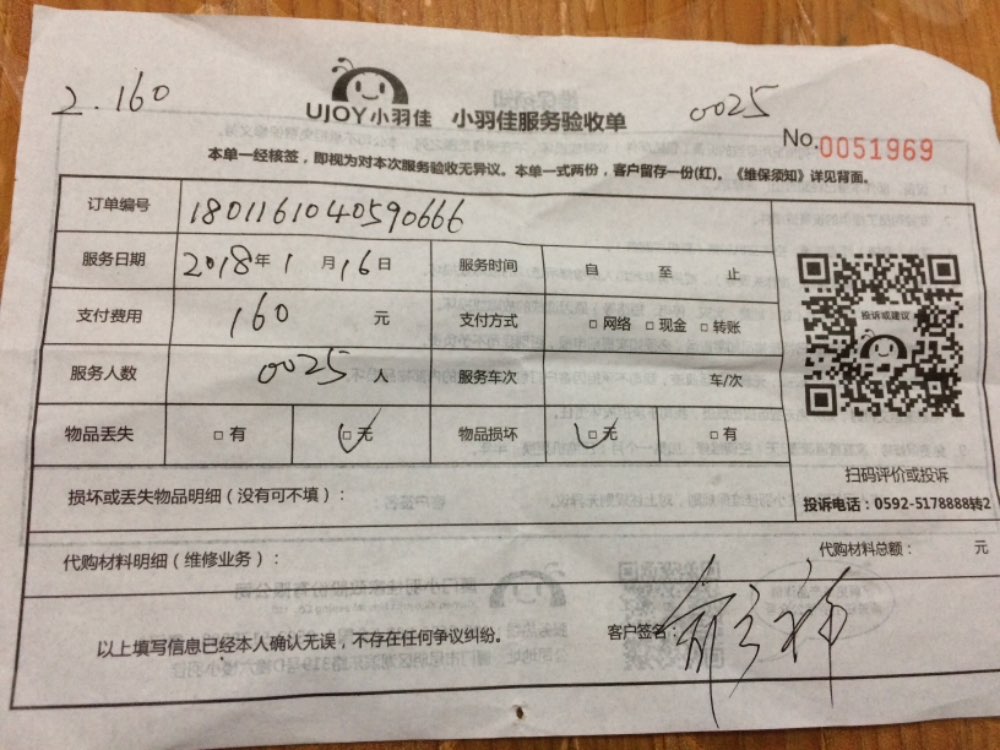 2.160
0025
UJOY小羽佳 小羽佳服务验收单
No.0051969
本单一经核签，即视为对本次服务验收无异议。本单一式两份，客户留存一份(红)。《维保须知》详见背面。
订单编号 1801161040590666
服务日期 2018年1月16日 服务时间 自 至 止
支付费用 160 元 支付方式 □ 网络 □ 现金 □ 转账
投诉或建议
服务人数 0025 人 服务车次 车/次
物品丢失 □ 有 □ 无 物品损坏 □ 无 □ 有
扫码评价或投诉
损坏或丢失物品明细（没有可不填）：
投诉电话：0592-5178888转2
代购材料明细（维修业务）：
代购材料总额： 元
以上填写信息已经本人确认无误，不存在任何争议纠纷。
客户签名：